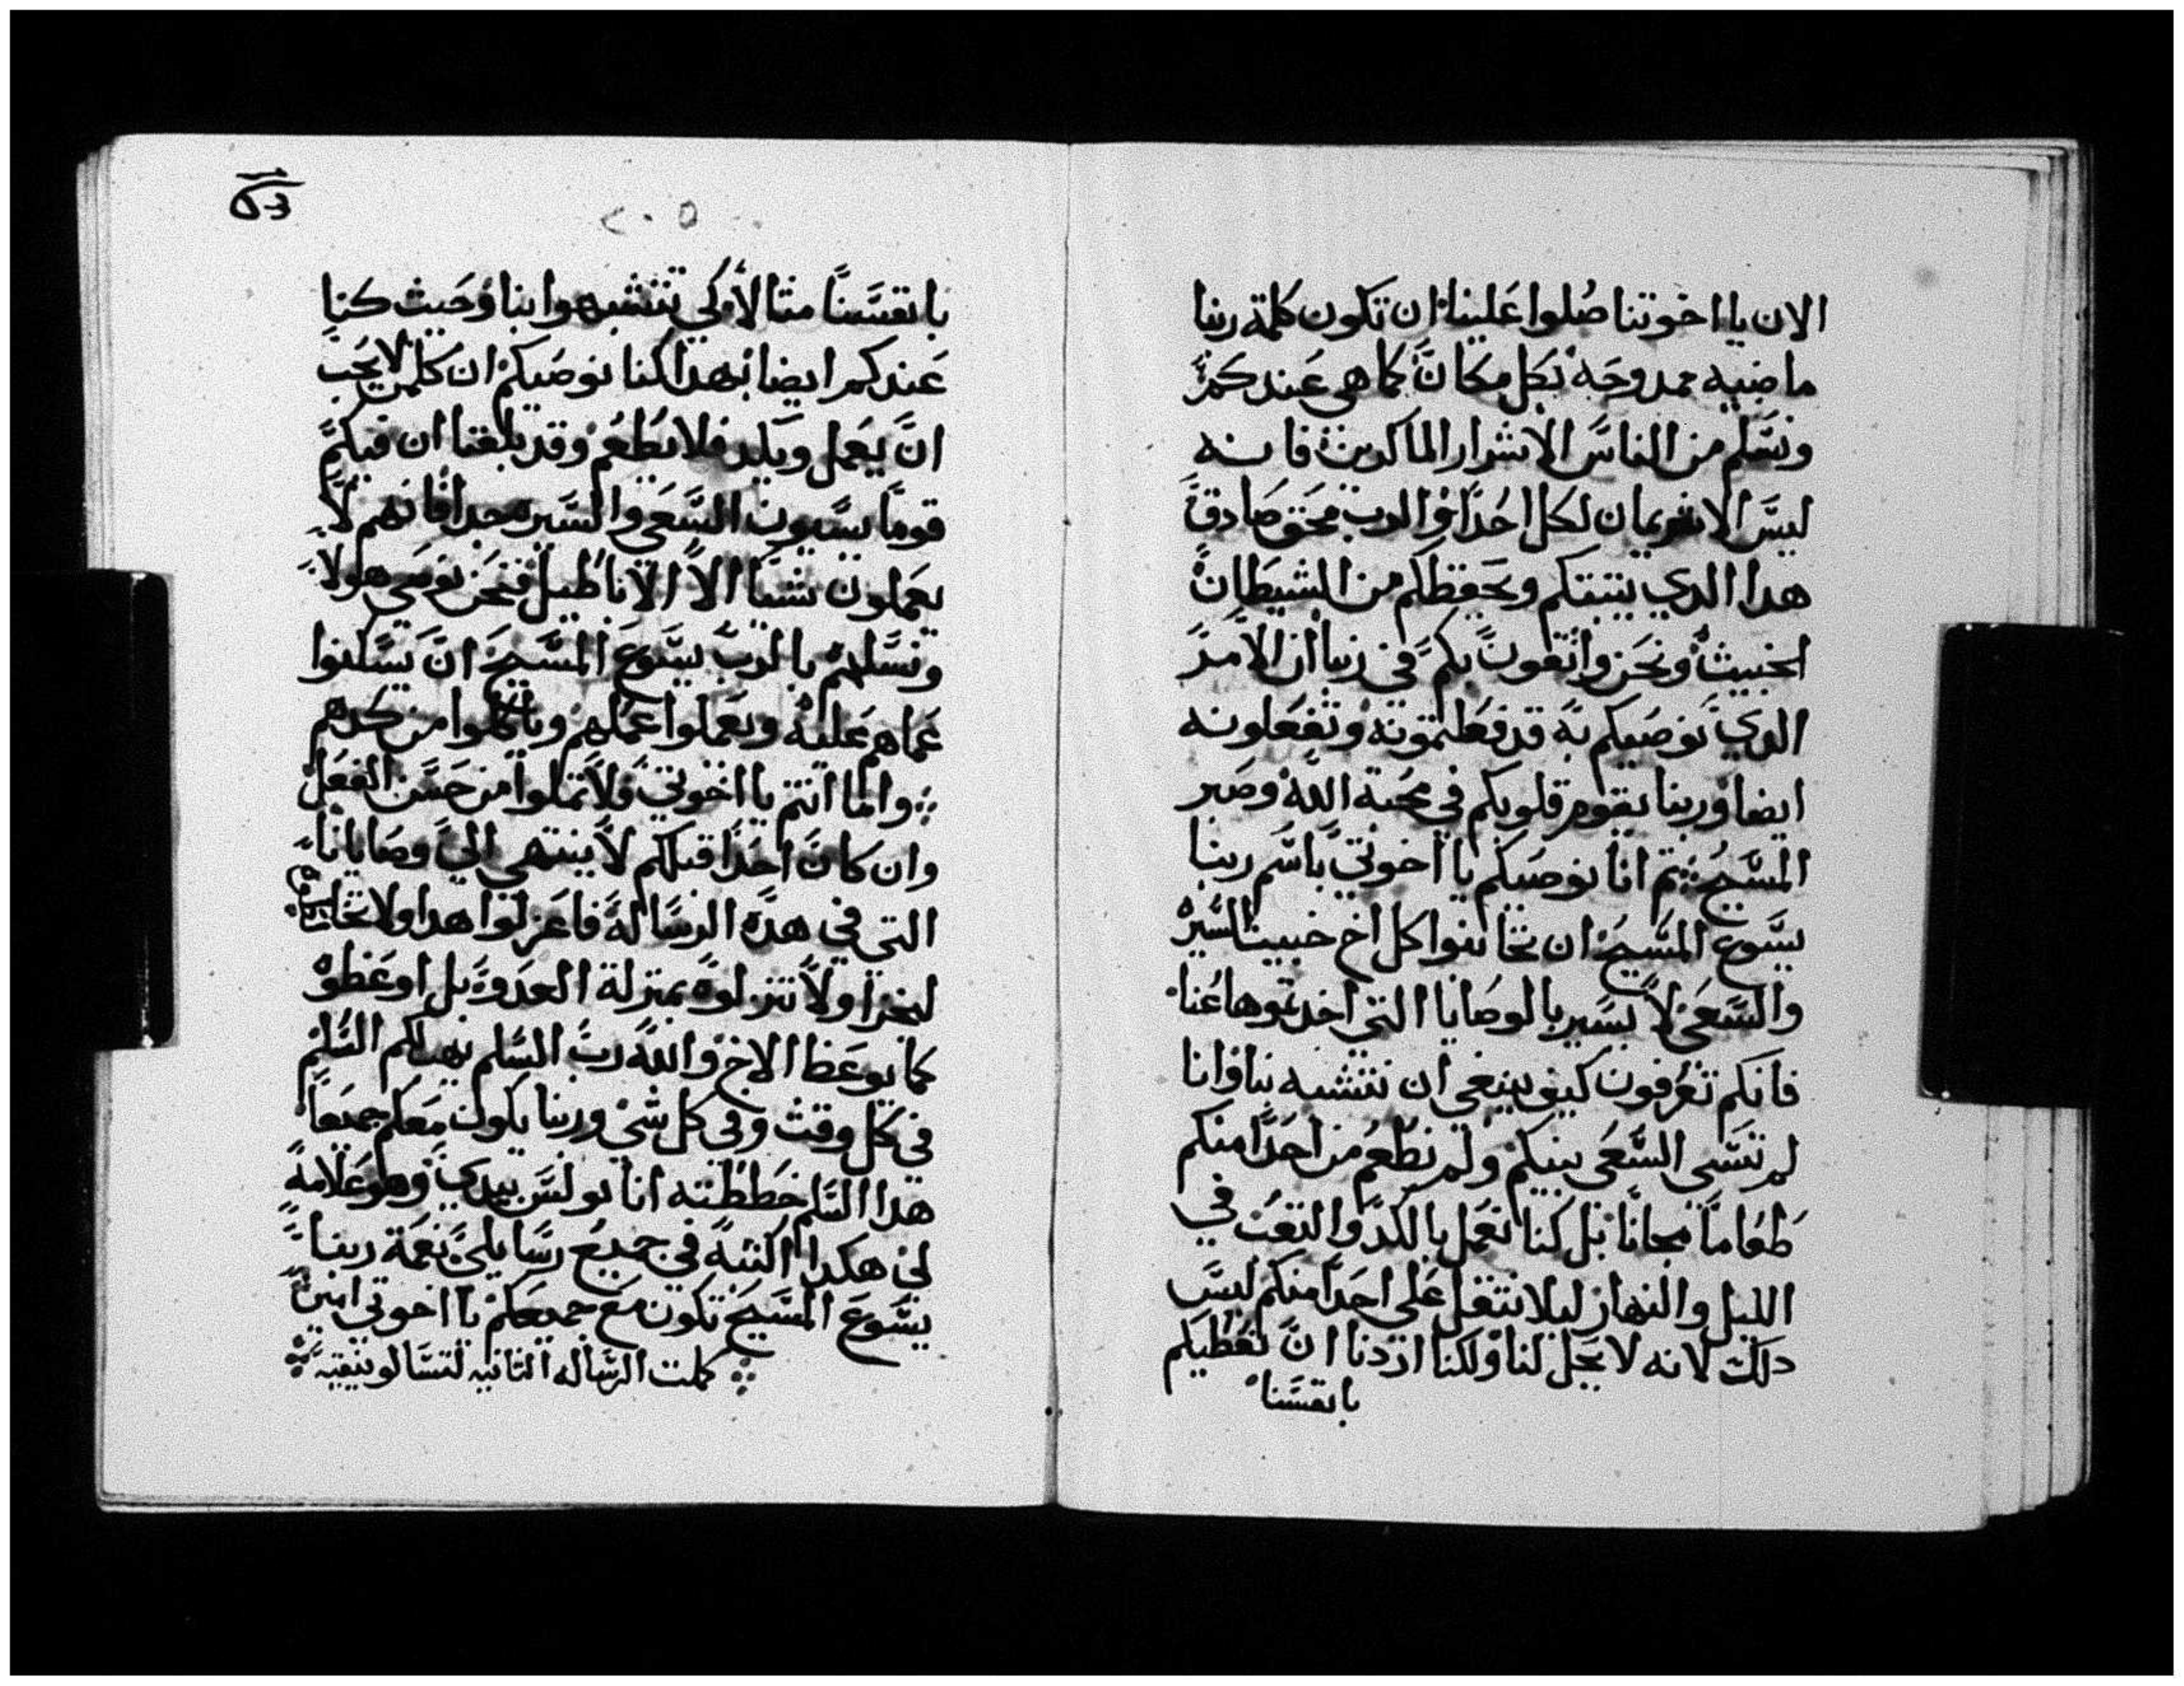 الان يا اخوتنا صلوا علينا ان تكون كلمة ربنا
ماضيه ممدوحه بكل مكان كما هي عندكم
ونسلم من الناس الاشرار الماكرين فانه
ليس الايمان لكل احدا والرب محق صادق
هدا الدي يثبتكم ويحفظكم من الشيطان
الخبيث ونحن واثقون بكم في ربنا ان الامر
الدي نوصيكم به قد فعلتموته وتفعلونه
ايضا وربنا يقوم قلوبكم في محبة الله وصبر
المسيح ثم انا نوصيكم يا اخوتي باسم ربنا
يسوع المسيح ان تجانبوا كل اخ خبيث السير
والسعي لا يسير بالوصايا التي اخدتموها عنا
فانكم تعرفون كيف ينبغي ان تتشبه بنا وانا
لم نسي السعي بينكم ولم نطعم من احدا منكم
طعاما مجانا بل كنا نعمل بالكد والتعب في
الليل والنهار ليلا نثقل على احدا منكم ليس
دلك لانه لا يحل لنا ولكنا اردنا ان نعطيكم
بانفسنا
بانفسنا مثالا كي تتشبهوا بنا وحيث كنا
عندكم ايضا بهدا كنا نوصيكم ان كلمن لا يحب
ان يعمل ويكد فلا يطعم وقد بلغنا ان فيكم
قوما يسيون السعي والسيره جدا فانهم لا
يعملون شيا الا الاباطيل فنحن نوصي هولا
ونسلهم بالرب يسوع المسيح ان يسكنوا
عماهم عليه ويعملوا عملهم وياكلوا من كدهم
واما انتم يا اخوتي فلا تملوا من حسن الفعل
وان كان احدا قبلكم لا ينتهي الي وصايانا
التي في هده الرساله فاعزلوا هدا ولا تخالطوه
ليخزا ولا تنزلوه بمنزلة العدوه بل اوعظوه
كما يوعظ الاخ والله رب السلم يهب لكم السلم
في كل وقت وفي كل شي وربنا يكون معكم جميعا
هدا السلم خططته انا بولس بيدي وهو علامة
لي هكدا اكتبه في جميع رسايلي نعمة ربنا
يسوع المسيح تكون مع جميعكم يا اخوتي امين
كملت الرساله الثانيه لتسالونيقيه